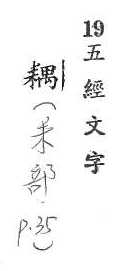 19五經文字
耦(耒部.p.35)